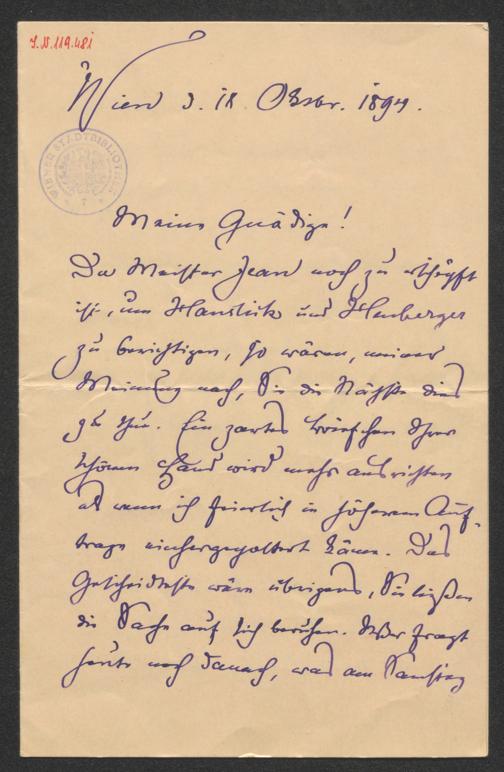 J.N. 119.481
Wien d. 18 Oktbr. 1894.
WIENER STADTBIBLIOTHEK
Meine Gnädige!
Da Meister Jean noch zu erschöpft
ist, um Hanslick und Heuberger
zu berichtigen, so wären, meiner
Meinung nach, Sie die Nächste dies
zu thun. Ein zartes Briefchen Ihrer
schönen Hand wird mehr ausrichten
als wenn ich feierlich in höherem Auf-
trage einhergepoltert käme. Das
Gescheidteste wäre übrigens, Sie ließen
die Sache auf sich beruhen. Wer fragt
heute noch danach, was am Samstag